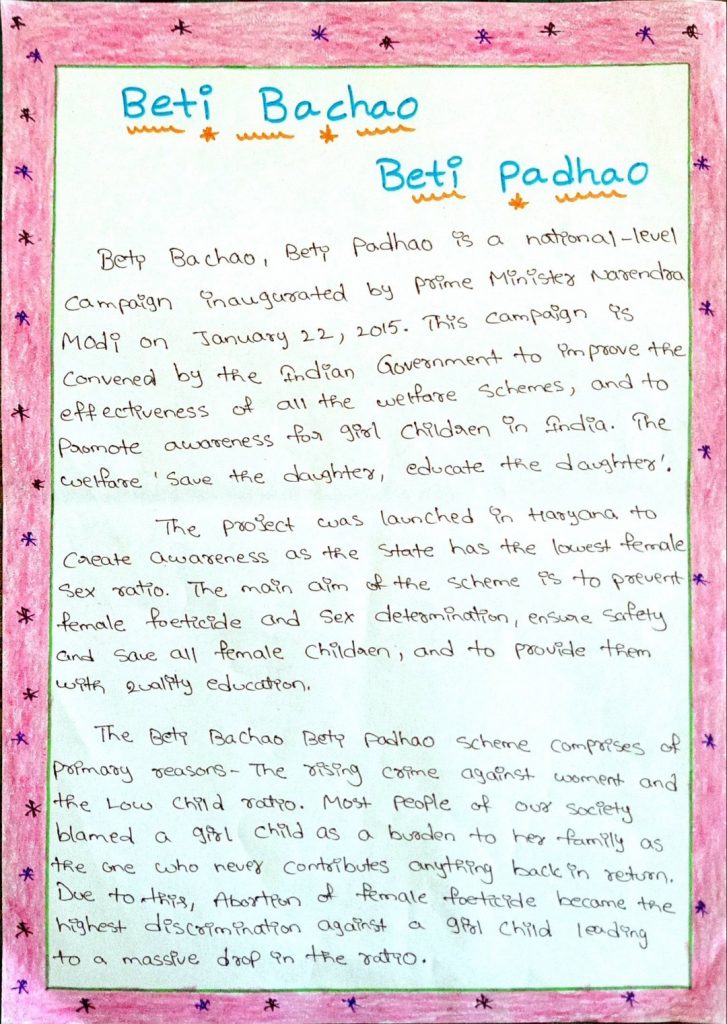 Beti Bachao
Beti Padhao
Beti Bachao, Beti Padhao is a national-level
campaign inaugurated by prime Minister Narendra
Modi on January 22, 2015. This campaign is
convened by the Indian Government to improve the
effectiveness of all the welfare schemes, and to
promote awareness for girl children in India. The
welfare 'save the daughter, educate the daughter'.
The project was launched in Haryana to
create awareness as the state has the lowest female
sex ratio. The main aim of the scheme is to prevent
female foeticide and sex determination, ensure safety
and save all female children, and to provide them
with quality education.
The Beti Bachao Beti Padhao scheme comprises of
primary reasons- The rising crime against woment and
the Low child ratio. Most people of our society
blamed a girl child as a burden to her family as
the one who never contributes anything back in return.
Due to this, Abortion of female foeticide became the
highest discrimination against a girl child leading
to a massive drop in the ratio.